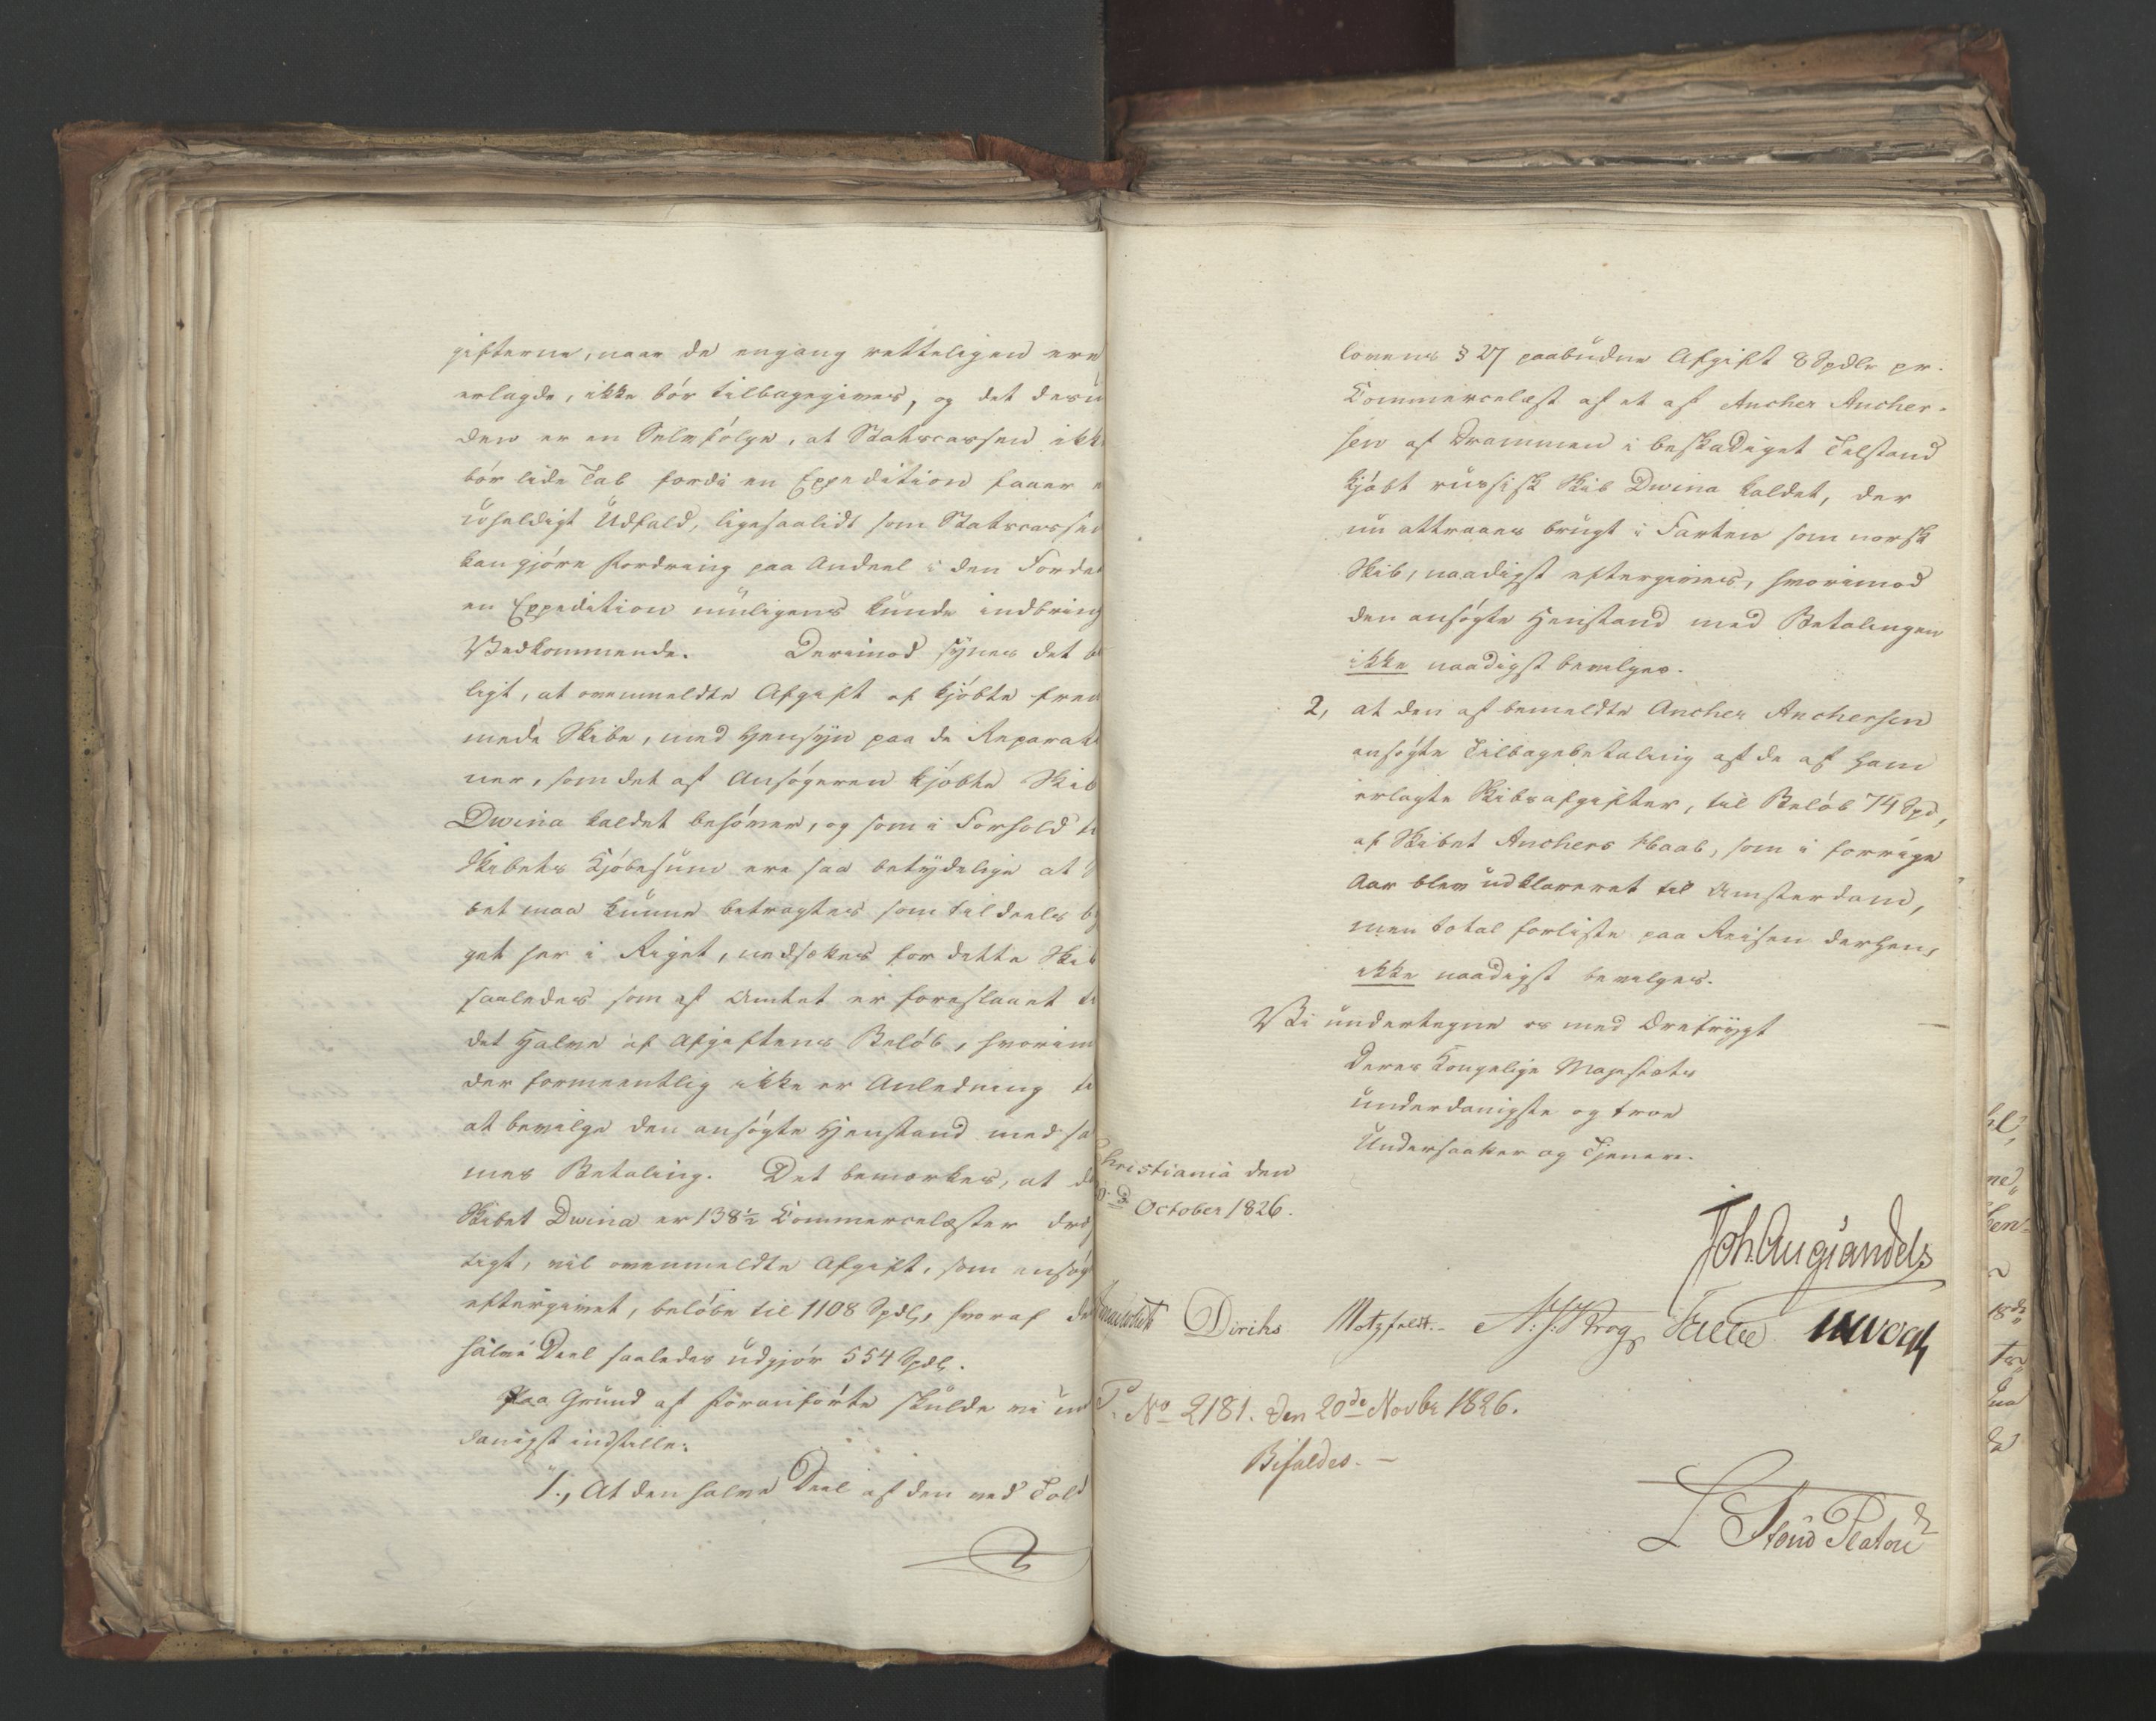 gifterne, naar de engang retteligen ere
erlagde, ikke bör tilbagegives, og det desu
den er en Selvfölge, at Statscassen ikk
bör lide Tab fordi en Expedition faaer e
uheldigt Udfald, ligesaalidt som Statscassen
kan gjöre Fordring paa Andeel i den Fordel
en Expedition muligens kunde indbring
Vedkommende. Derimod synes det b
ligt, at ovenmeldte Afgift af kjöbte frem
mede Skibe, med Hensyn paa de Reparati
ner, som det af Ansögeren kjöbte Skib
Dwina kaldet behöver, og som i Forhold ti
Skibets Kjöbesum ere saa betydelige at S
bet maa kunne betragtes som tildeels by
get her i Riget, nedsættes for dette Skib
saaledes som af Amtet er foreslaaet ti
det Halve af Afgiftens Belöb, hvorim
der formeentlig ikke er Anledning ti
at bevilge den ansögte Henstand med sa
mes Betaling. Det bemærkes, at da
Skibet Dwina er 138½ Commercelæster dræg
tigt, vil ovenmeldte Afgift, som ansög
eftergivet, belöbe til 1108 Spdlr, hvoraf de
halve Deel saaledes udgjör 554 Spdlr.
Paa Grund af foranförte skulde vi un
danigst indstille:
1., At den halve Deel af den ved Told
lovens § 27 paabudne Afgift 8 Spdlr pr.
Commercelæst af et af Ancher Ancher-
sen af Drammen i beskadiget Tilstand
kjöbt russisk Skib Dwina kaldet, der
nu attraaes brugt i Farten som norsk
Skib, naadigst eftergives, hvorimod
den ansögte Henstand med Betalingen
ikke naadigst bevilges.
2, at den af bemeldte Ancher Anchersen
ansögte Tilbagebetaling af de af ham
erlagte Skibsafgifter, til Belöb 74 Spd,
af Skibet Anchers Haab, som i forrige
Aar blev udklareret til Amsterdam,
men total forliste paa Reisen derhen,
ikke naadigst bevilges.
Vi undertegne os med Ærefrygt
Deres Kongelige Majestæts
underdanigste og troe
Undersaatter og Tjenere.
Christiania den
October 1826.
Joh. Aug. Sandels
Diriks Motzfeldt. Krog Vogt
No 2181. Den 20de Novbr 1826.
Bifaldes.
Stoud Platou